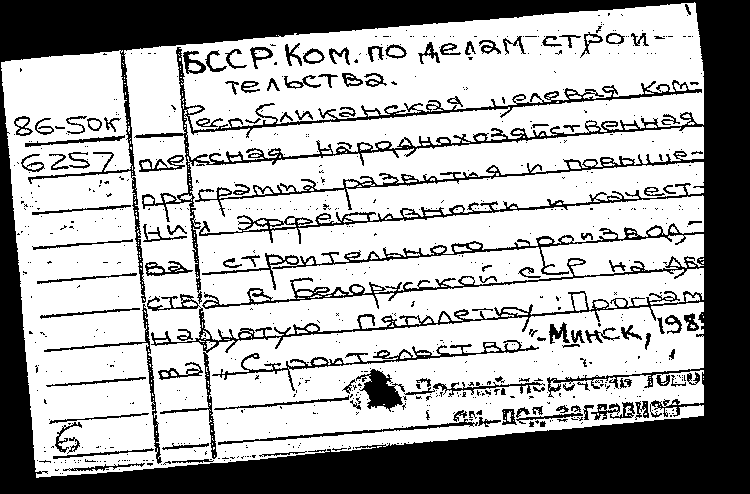 БССР. Ком. по делам строи-
тельства.
86-50к
Республиканская целевая ком-
6257
плексная народнохозяйственная
программа развития и повыше-
ния эффективности и качест-
ва строительного производ-
ства в Белорусской ССР на две
надцатую пятилетку: Програм
ма „Строительство".-Минск, 198
Полный перечень томо
см. под заглавием
6